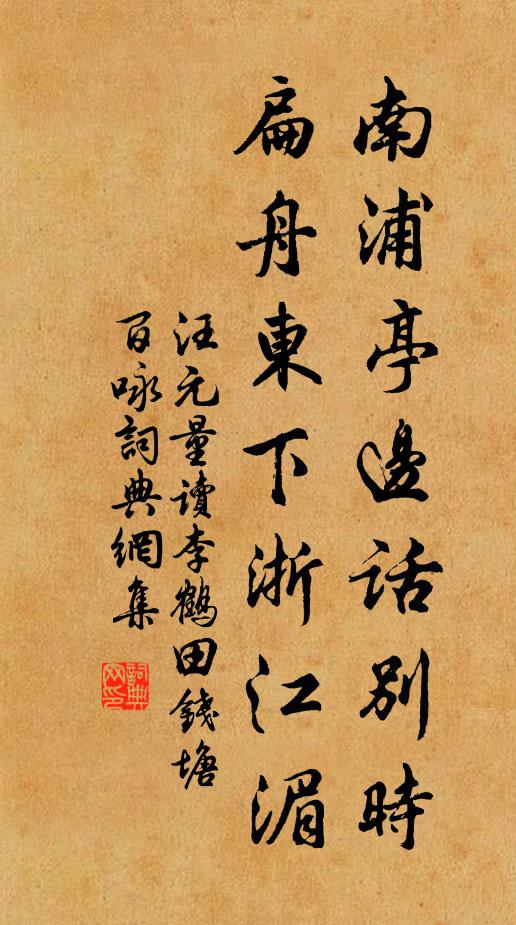 南浦亭邊話別時
扁舟東下浙江湄
汪元量讀李鶴田錢塘
百咏詞典網集
詞典网印